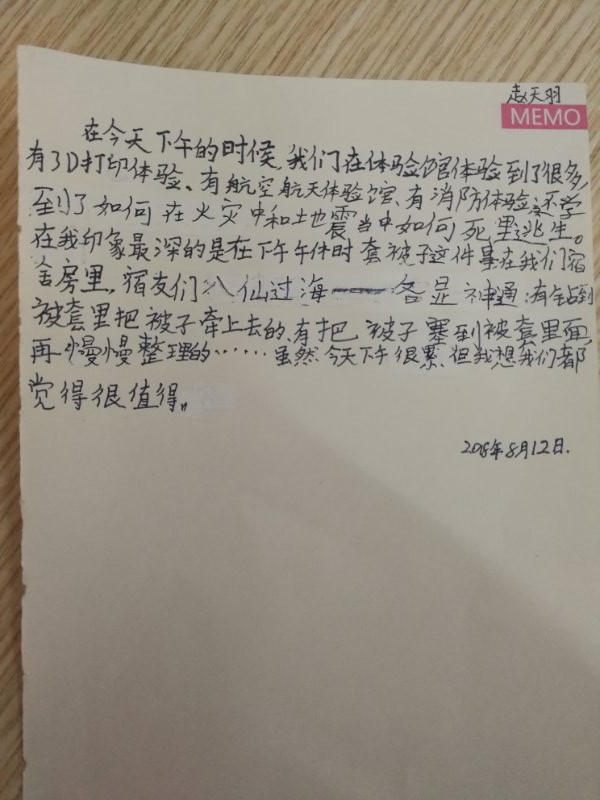 赵天羽
MEMO
在今天下午的时候,我们在体验馆体验到了很多,
有3D打印体验、有航空航天体验馆、有消防体验,还学
到了如何在火灾中和土地震当中如何死里逃生。
在我印象最深的是在下午午休时套被子这件事在我们宿
舍房里,宿友们八仙过海——各显神通:有钻到
被套里把被子牵上去的、有把被子塞到被套里面,
再慢慢整理的……虽然今天下午很累,但我想我们都
觉得很值得。
2018年8月12日.